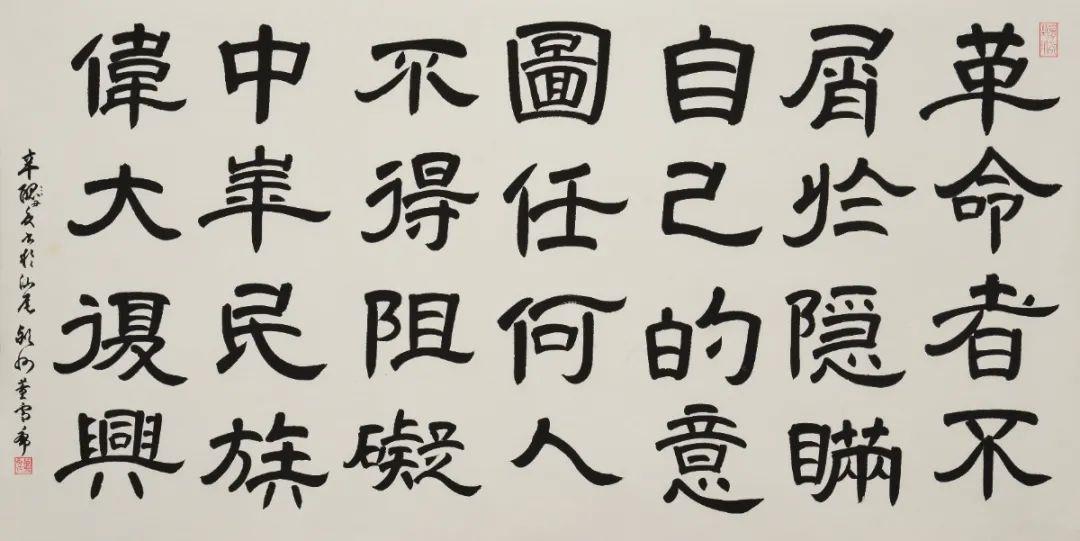 革命者不
屑於隐瞞
自己的意
圖任何人
不得阻礙
中華民族
偉大復興
辛醜冬书於汕尾